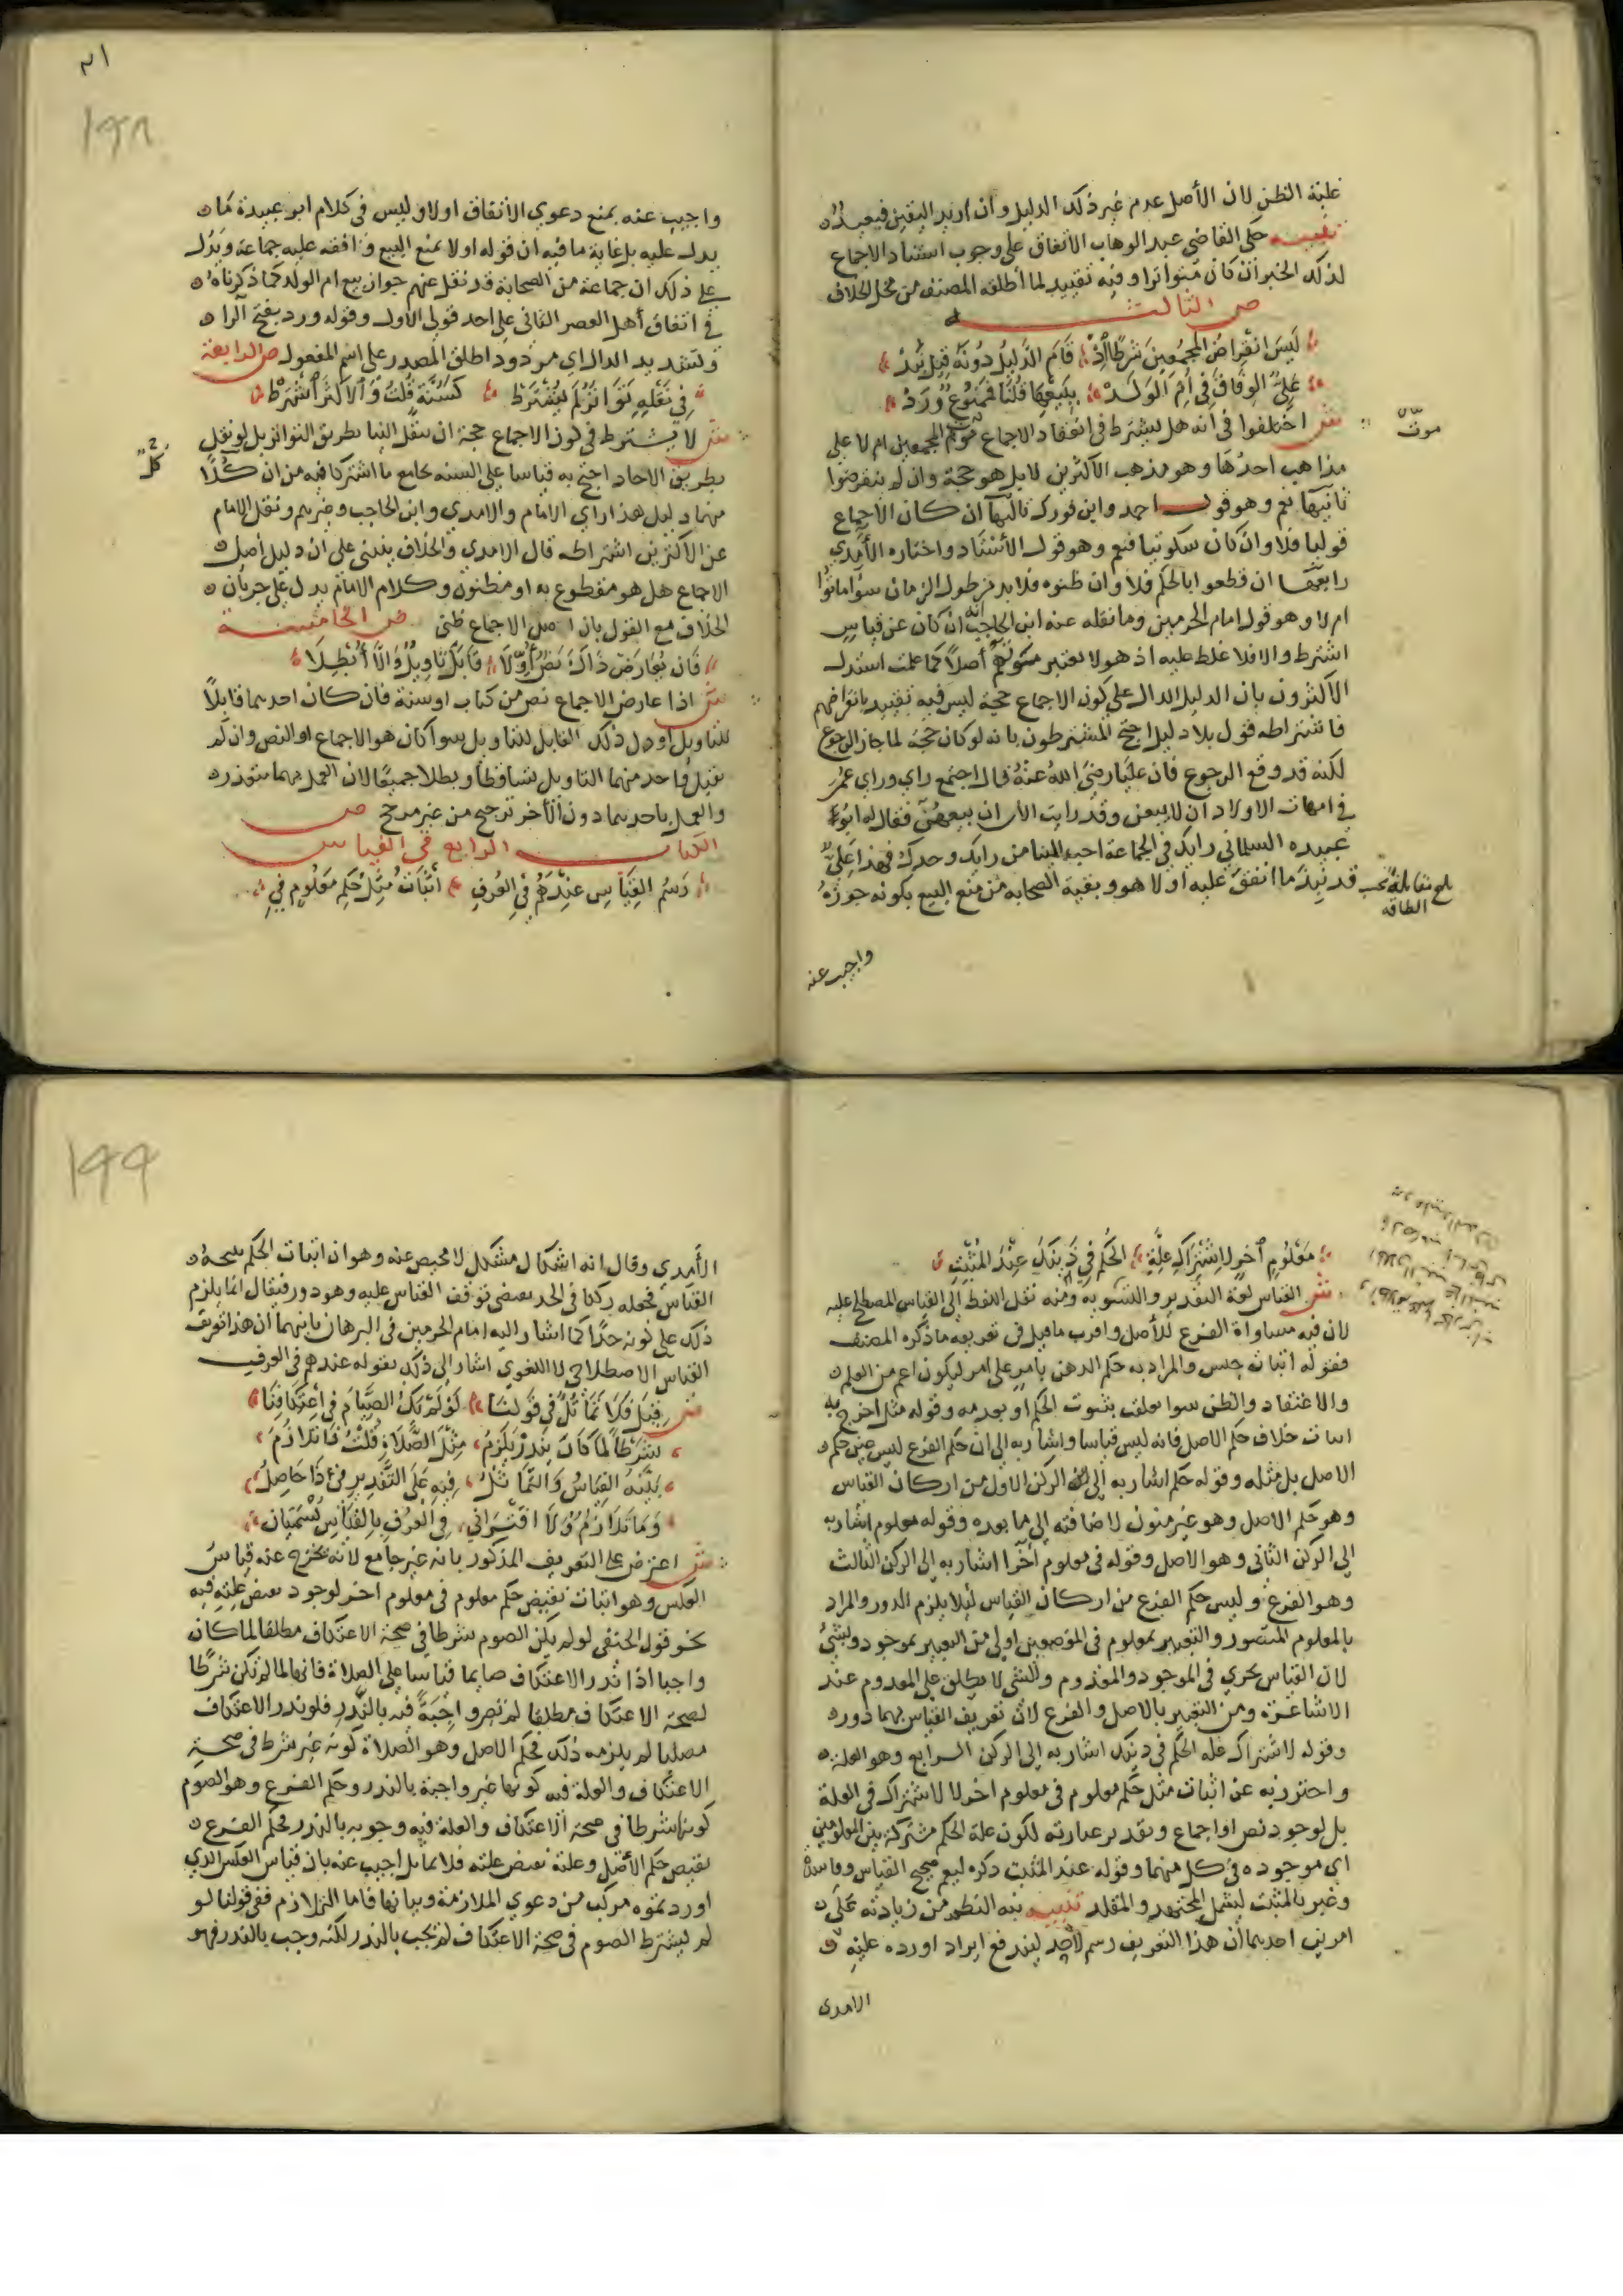 غلبة الظن لان الأصل عدم غير ذلك الدليل وان اريد اليقين فبعيد
تنبيه حكى القاضي عبد الوهاب الاتفاق على وجوب استناد الاجماع
لذلك الخبر ان كان متواترا وفيه تقييد لما أطلقه المصنف من محل الخلاف
ص الثالث
لَيسَ انقِراضُ المجمعِينَ شَرطًا اذ قَامَ الدَّليلُ دُونَهُ قِيلَ نُبِذْ
عَلِيٌّ الوِفَاقَ فِي أُمِّ الوَلَدْ بِبَيعِهَا قُلنَا فَمَمنُوعٌ وَرَدْ
ش اختلفوا في انه هل يشترط في انعقاد الاجماع موت المجمعين ام لا على
موت
مذاهب احدُهَا وهو مذهب الأكثرين لا بل هو حجة وان لم ينقرضوا
ثانيها نعم وهو قول احمد وابن فورك ثالثها ان كان الاجماع
قوليا فلا وان كان سكوتيا فنعم وهو قول الأستناد واختاره الآمدي
رابعها ان قطعوا بالحكم فلا وان ظنوه فلا بد من طول الزمان سوا ماتوا
ام لا وهو قول امام الحرمين وما نقله عنه ابن الحاجب انه ان كان عن قياس
اشترط والا فلا غلط عليه اذ هو لا يعتبر موتهم أصلا كما علمت استدل
الأكثرون بان الدليل الدال على كون الاجماع حجة ليس فيه تقييد بانقراضهم
فاشتراطه قول بلا دليل احتج المشترطون بانه لو كان حجة لما جاز الرجوع
لكنه قد وقع الرجوع فان عليا رضي الله عنه قال اجتمع راي وراي عمر
في امهات الاولاد ان لا يبعن وقد رايت الأن ان بيعهن فقال له ابو
عبيده السلماني رايك في الجماعة احب الينا من رايك وحدك فهذا علي
قد نبذ ما اتفق عليه أولا هو وبقية الصحابه من منع البيع بكونه جوزه
بلغ مقابلة بحسب
الطاقه
واجيب عنه
١٩٨
واجيب عنه بمنع دعوي الاتفاق اولا وليس في كلام ابو عبيدة ما
يدل عليه بل غاية ما فيه ان قوله اولا بمنع البيع وافقه عليه جماعة ويدل
علي ذلك ان جماعة من الصحابة قد نقل عنهم جواز بيع ام الولد كما ذكرناه
في اتفاق أهل العصر الثاني علي احد قولي الأول وقوله ورد بفتح الرا
وتشديد الدال اي مردود اطلق المصدر على اسم المفعول ص الرابعة
فِي نَقلِهِ تَوَاتُرٌ لَم يُشتَرَط كَسُنَّةٍ قُلتُ وَالأكثَرُ اشتَرَط
ش لا يشترط في كون الاجماع حجة ان ينقل الينا بطريق التواتر بل لو نقل
بطريق الاحاد احتج به قياسا على السنه بجامع ما اشتركا فيه من ان كلا
كل
منهما دليل هذا راي الامام والامدي وابن الحاجب وغيرهم ونقل الامام
عن الأكثرين اشتراطه قال الامدي والخلاف ينبني على ان دليل أصل
الاجماع هل هو مقطوع به او مظنون وكلام الامام يدل على جريان
الخلاف مع القول بان اصل الاجماع ظني ص الخامسة
فَان يُعَارِض ذَاكَ نَصٌّ أُوِّلَا قَابَلَ تَاوِيلٍ وَالَّا أُبطِلَا
ش اذا عارض الاجماع نص من كتاب او سنة فان كان احدهما قابلًا
للتاويل أُوِّل ذلك القابل للتاويل سوا كان هو الاجماع او النص وان لم
يقبل واحد منهما التاويل تساقطا وبطلا جميعًا لان العمل بهما متعذر
والعمل باحدهما دون الأخر ترجيح من غير مرجح ص
الكتاب الرابع في القياس
رَسمُ القِيَاسِ عِندَهُم فِي العُرفِ اثبَاتُ مِثلِ حُكمِ مَعلُومٍ فِي
مَعلُومٍ آخرٍ لاشتِرَاكِ عِلَّةِ الحُكمِ فِي ذَينِكَ عِندَ المُثبِتِ
ش القياس لغة التقدير والتسويه ومنه نقل اللفظ إلى القياس المصطلح عليه
لان فيه مساواة الفرع للأصل واقرب ما قيل في تعريفه ما ذكره المصنف
فقوله اثبات جنس والمراد به حكم الذهن بامر على امر ليكون اعم من العلم
والاعتقاد والظن سوا تعلقت بثبوت الحكم او بعدمه وقوله مثل اخرج به
اثبات خلاف حكم الاصل فانه ليس قياسا واشار به الي ان حكم الفرع ليس عين حكم
الاصل بل مثله وقوله حكم اشار به إلى الركن الاول من اركان القياس
وهو حكم الاصل وهو غير منون لاضافته إلى ما بعده وقوله معلوم اشار به
الي الركن الثاني وهو الاصل وقوله في معلوم آخر اشار به إلى الركن الثالث
وهو الفرع وليس حكم الفرع من اركان القياس ليلا يلزم الدور والمراد
بالمعلوم المتصور والتعبير بمعلوم في الموضعين اولى من التعبير بموجود وبشئ
لان القياس يجري في الموجود والمعدوم والشي لا يطلق علي المعدوم عند
الاشاعرة ومن التعبير بالاصل والفرع لان تعريف القياس بهما دور
وقوله لاشتراك علة الحكم في ذينك اشار به إلى الركن الرابع وهو العلة
واحترز به عن اثبات مثل حكم معلوم في معلوم اخر لا لاشتراك في العلة
بل لوجود نص او اجماع وتقدير عبارته لكون علة الحكم مشتركة بين المعلومين
اي موجوده في كل منهما وقوله عند المثبت ذكره ليعم صحيح القياس وفاسده
وعبر بالمثبت ليشمل المجتهد والمقلد تنبيه نبه الناظم من زيادته على
امرين احدهما أن هذا التعريف رسم لا حد ليندفع ايراد اورده عليه
الامدى
١٩٩
الأمدي وقال انه اشكال مشكل لا محيص عنه وهو ان اثبات الحكم نتيجة
القياس فجعله ركنا في الحد يقتضي توقف القياس عليه وهو دور فيقال انما يلزم
ذلك على كونه حدًا كما اشار اليه امام الحرمين في البرهان ثانيهما ان هذا تعريف
القياس الاصطلاحي لا اللغوي اشار الى ذلك بقوله عندهم في العرف
ص قِيلَ فَلَا تَمَاثُلٌ فِي قَولِنَا لَو لَم يَكُ الصِّيَامُ فِي اعتِكَافِنَا
شَرطًا لَمَا كَانَ بِنَذرٍ يَلزَمُ مِثلَ الصَّلَاةِ قُلتُ ذَا تَلَازُمُ
بَيَّنَهُ القِيَاسُ وَالتَّمَاثُلُ فِيهِ عَلَى التَّقدِيرِ مِن ذَا حَاصِلُ
وَمَا تَلَازُمٌ وَلَا اقتِرَانِي فِي العُرفِ بِالقِيَاسِ يُسَمَّيَان
ش اعترض على التعريف المذكور بانه غير جامع لانه يخرج عنه قياس
العكس وهو اثبات نقيض حكم معلوم في معلوم اخر لوجود نقيض علته فيه
نحو قول الحنفي لو لم يكن الصوم شرطا في صحة الاعتكاف مطلقا لما كان
واجبا اذا نذر الاعتكاف صايما قياسا على الصلاة فانها لما لم تكن شرطا
لصحة الاعتكاف مطلقا لم تصر واجبة فيه بالنذر فلو نذر الاعتكاف
مصليا لم يلزمه ذلك فحكم الاصل وهو الصلاة كونه غير شرط في صحة
الاعتكاف والعلة فيه كونها غير واجبة بالنذر وحكم الفرع وهو الصوم
كونه شرطا في صحة الاعتكاف والعلة فيه وجوبه بالنذر فحكم الفرع
نقيض حكم الأصل وعلته نقيض علته فلا تماثل اجيب عنه بان قياس العكس الذي
اوردتموه مركب من دعوي الملازمة وبيانها فاما التلازم ففي قولنا لو
لم يشترط الصوم في صحة الاعتكاف لم يجب بالنذر لكنه وجب بالنذر فهو